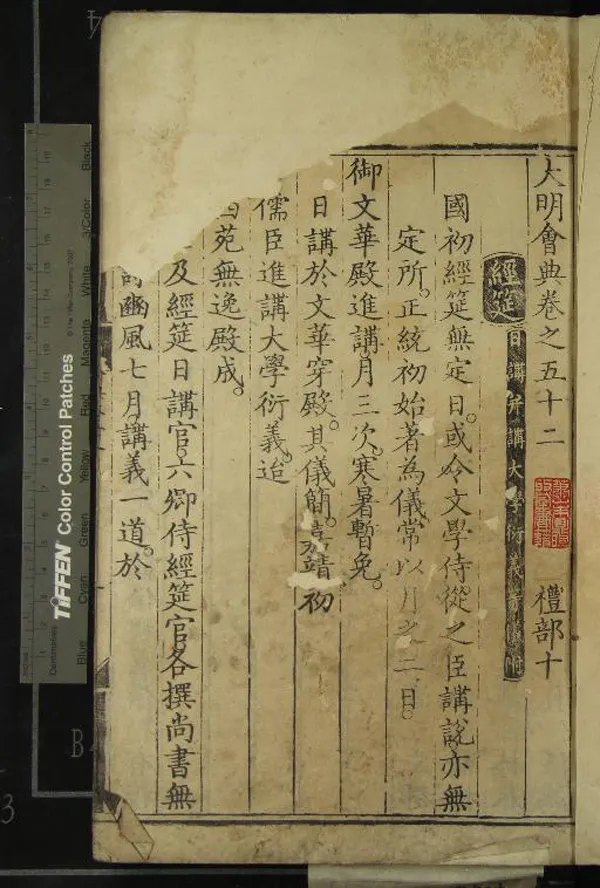 大明會典卷之五十二 禮部十
經筵 日講并講大學衍義等儀附
國初經筵無定日。或令文學侍從之臣講說亦無
定所。正統初始著為儀常以月之二日。
御文華殿進講月三次。寒暑暫免。
日講於文華穿殿。其儀簡。嘉靖初
儒臣進講大學衍義。迨
西苑無逸殿成。
及經筵日講官。六卿侍經筵官各撰尚書無
豳風七月。講義一道。於
TIFFEN Color Control Patches
© The Tiffen Company, 2007
Centimetres
Blue Cyan Green Yellow Red Magenta White 3/Color Black